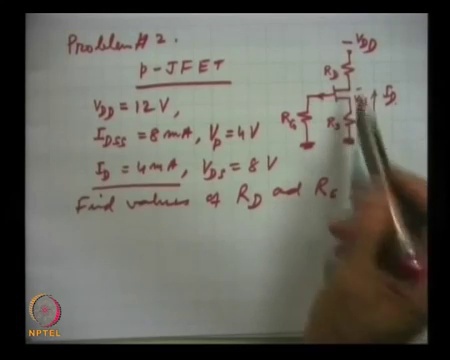 Problem # 2.
p-JFET
VDD = 12 V,
IDSS = 8 mA, Vp = 4 V
ID = 4 mA, VDS = 8 V
Find values of RD and RS
-VDD
RD
RG
RS
ID
NPTEL